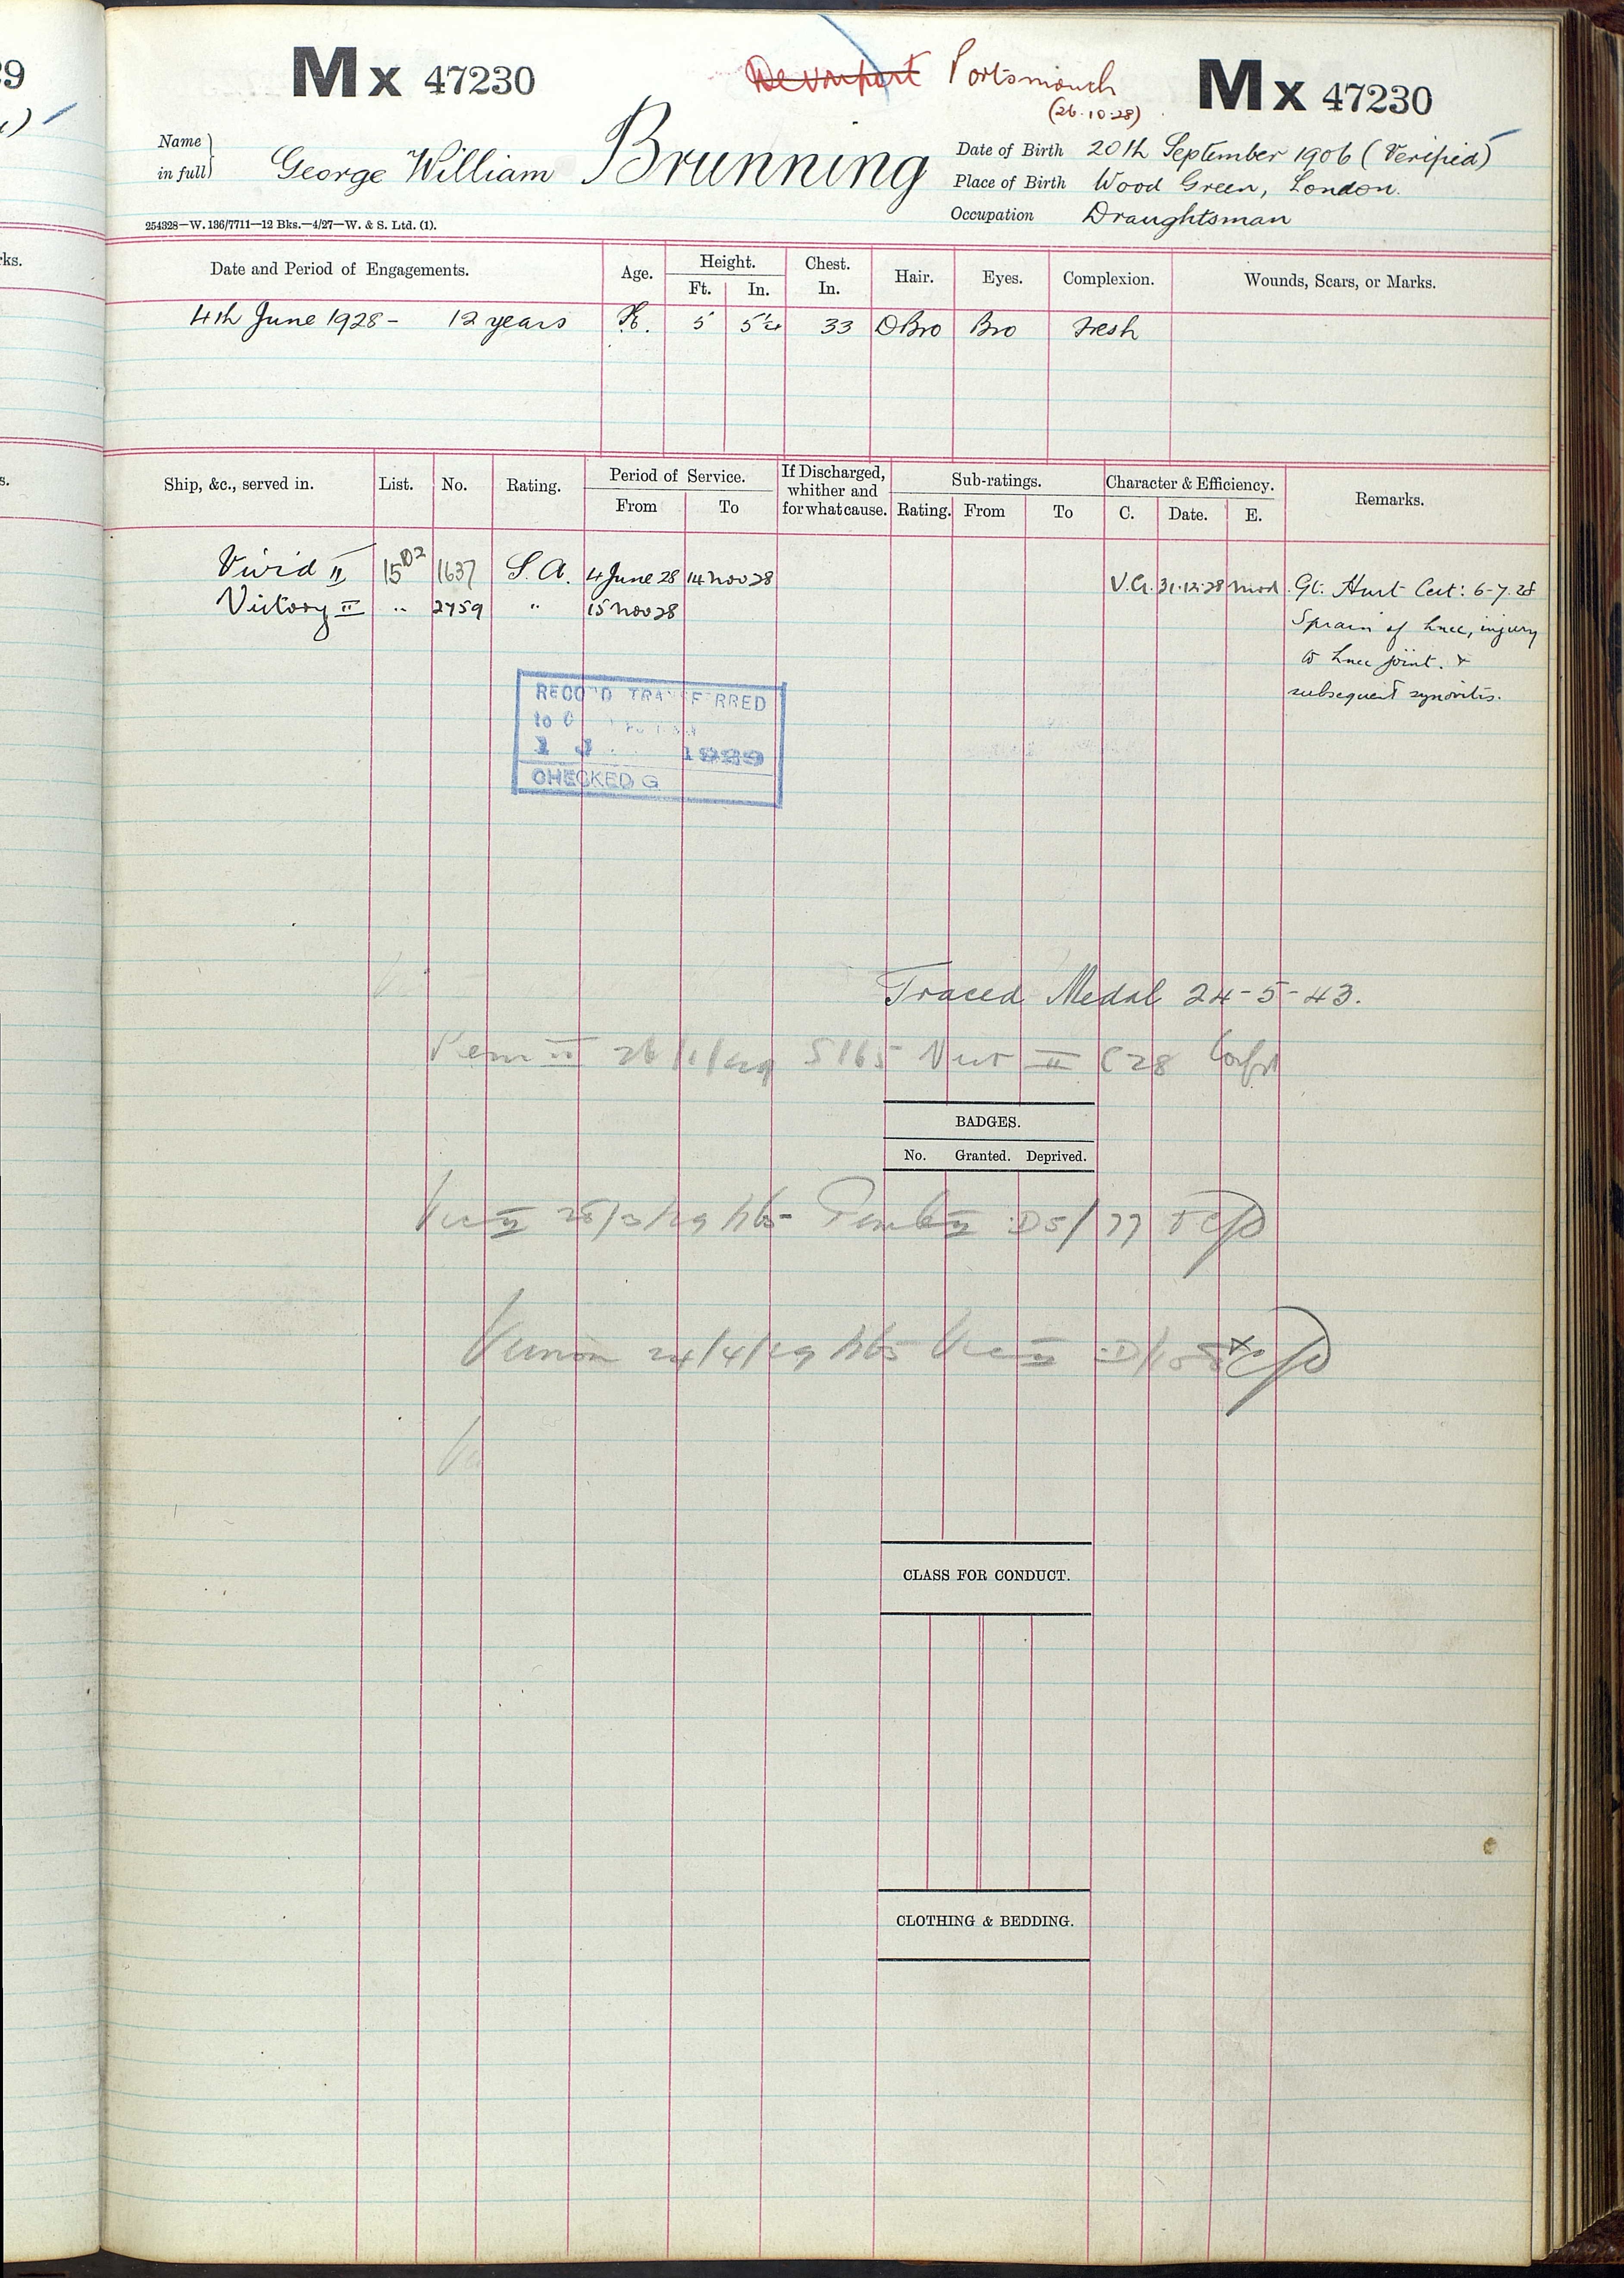 29
ks.
s.
Mx 47230
Devonport Portsmouth
(26.10.28)
Mx 47230
Name in full
George William Brunning
Date of Birth 20th September 1906 (Verified)
Place of Birth Wood Green, London.
Occupation Draughtsman
254328—W.136/7711—12 Bks.—4/27—W. & S. Ltd. (1).
Date and Period of Engagements. Age. Height. Ft. In. Chest. In. Hair. Eyes. Complexion. Wounds, Scars, or Marks.
4th June 1928 - 12 years 5 33 DBro Bro Fresh
Ship, &c., served in. List. No. Rating. Period of Service. From To If Discharged, whither and for what cause. Sub-ratings. Rating. From To Character & Efficiency. C. Date. E. Remarks.
Vivid II 15 D2 1637 S.A. 4 June 28 14 Nov 28 V.G. 31.12.28 Mod. Gt. Hurt Cert: 6-7.28
Victory II " 2759 " 15 Nov 28
Sprain of knee, injury
to knee joint. &
subsequent synovitis.
RECO D TRA F RRED
to C
1 J 1939
CHECKED G
Traced Medal 24-5-43.
II 26/1/29 5165 II C28
BADGES.
No. Granted. Deprived.
Vic II 28/3/29 Pemb II D5/77
Vernon 24/4/29 Vic II
CLASS FOR CONDUCT.
CLOTHING & BEDDING.